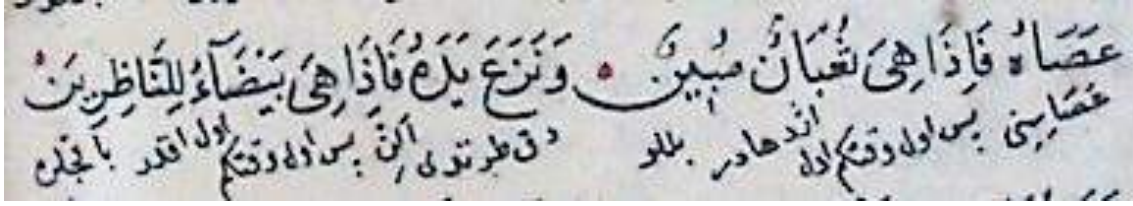 عَصَاهُ فَاِذَا هِىَ ثُعْبَانٌ مُبِينٌ وَنَزَعَ يَدَهُ فَاِذَا هِىَ بَيْضَآءُ لِلنَّاظِرِينَ
عصاسنى پس اول وقتكم اول اژدهادر بللو الن پس اول وقتكم اول اقدر